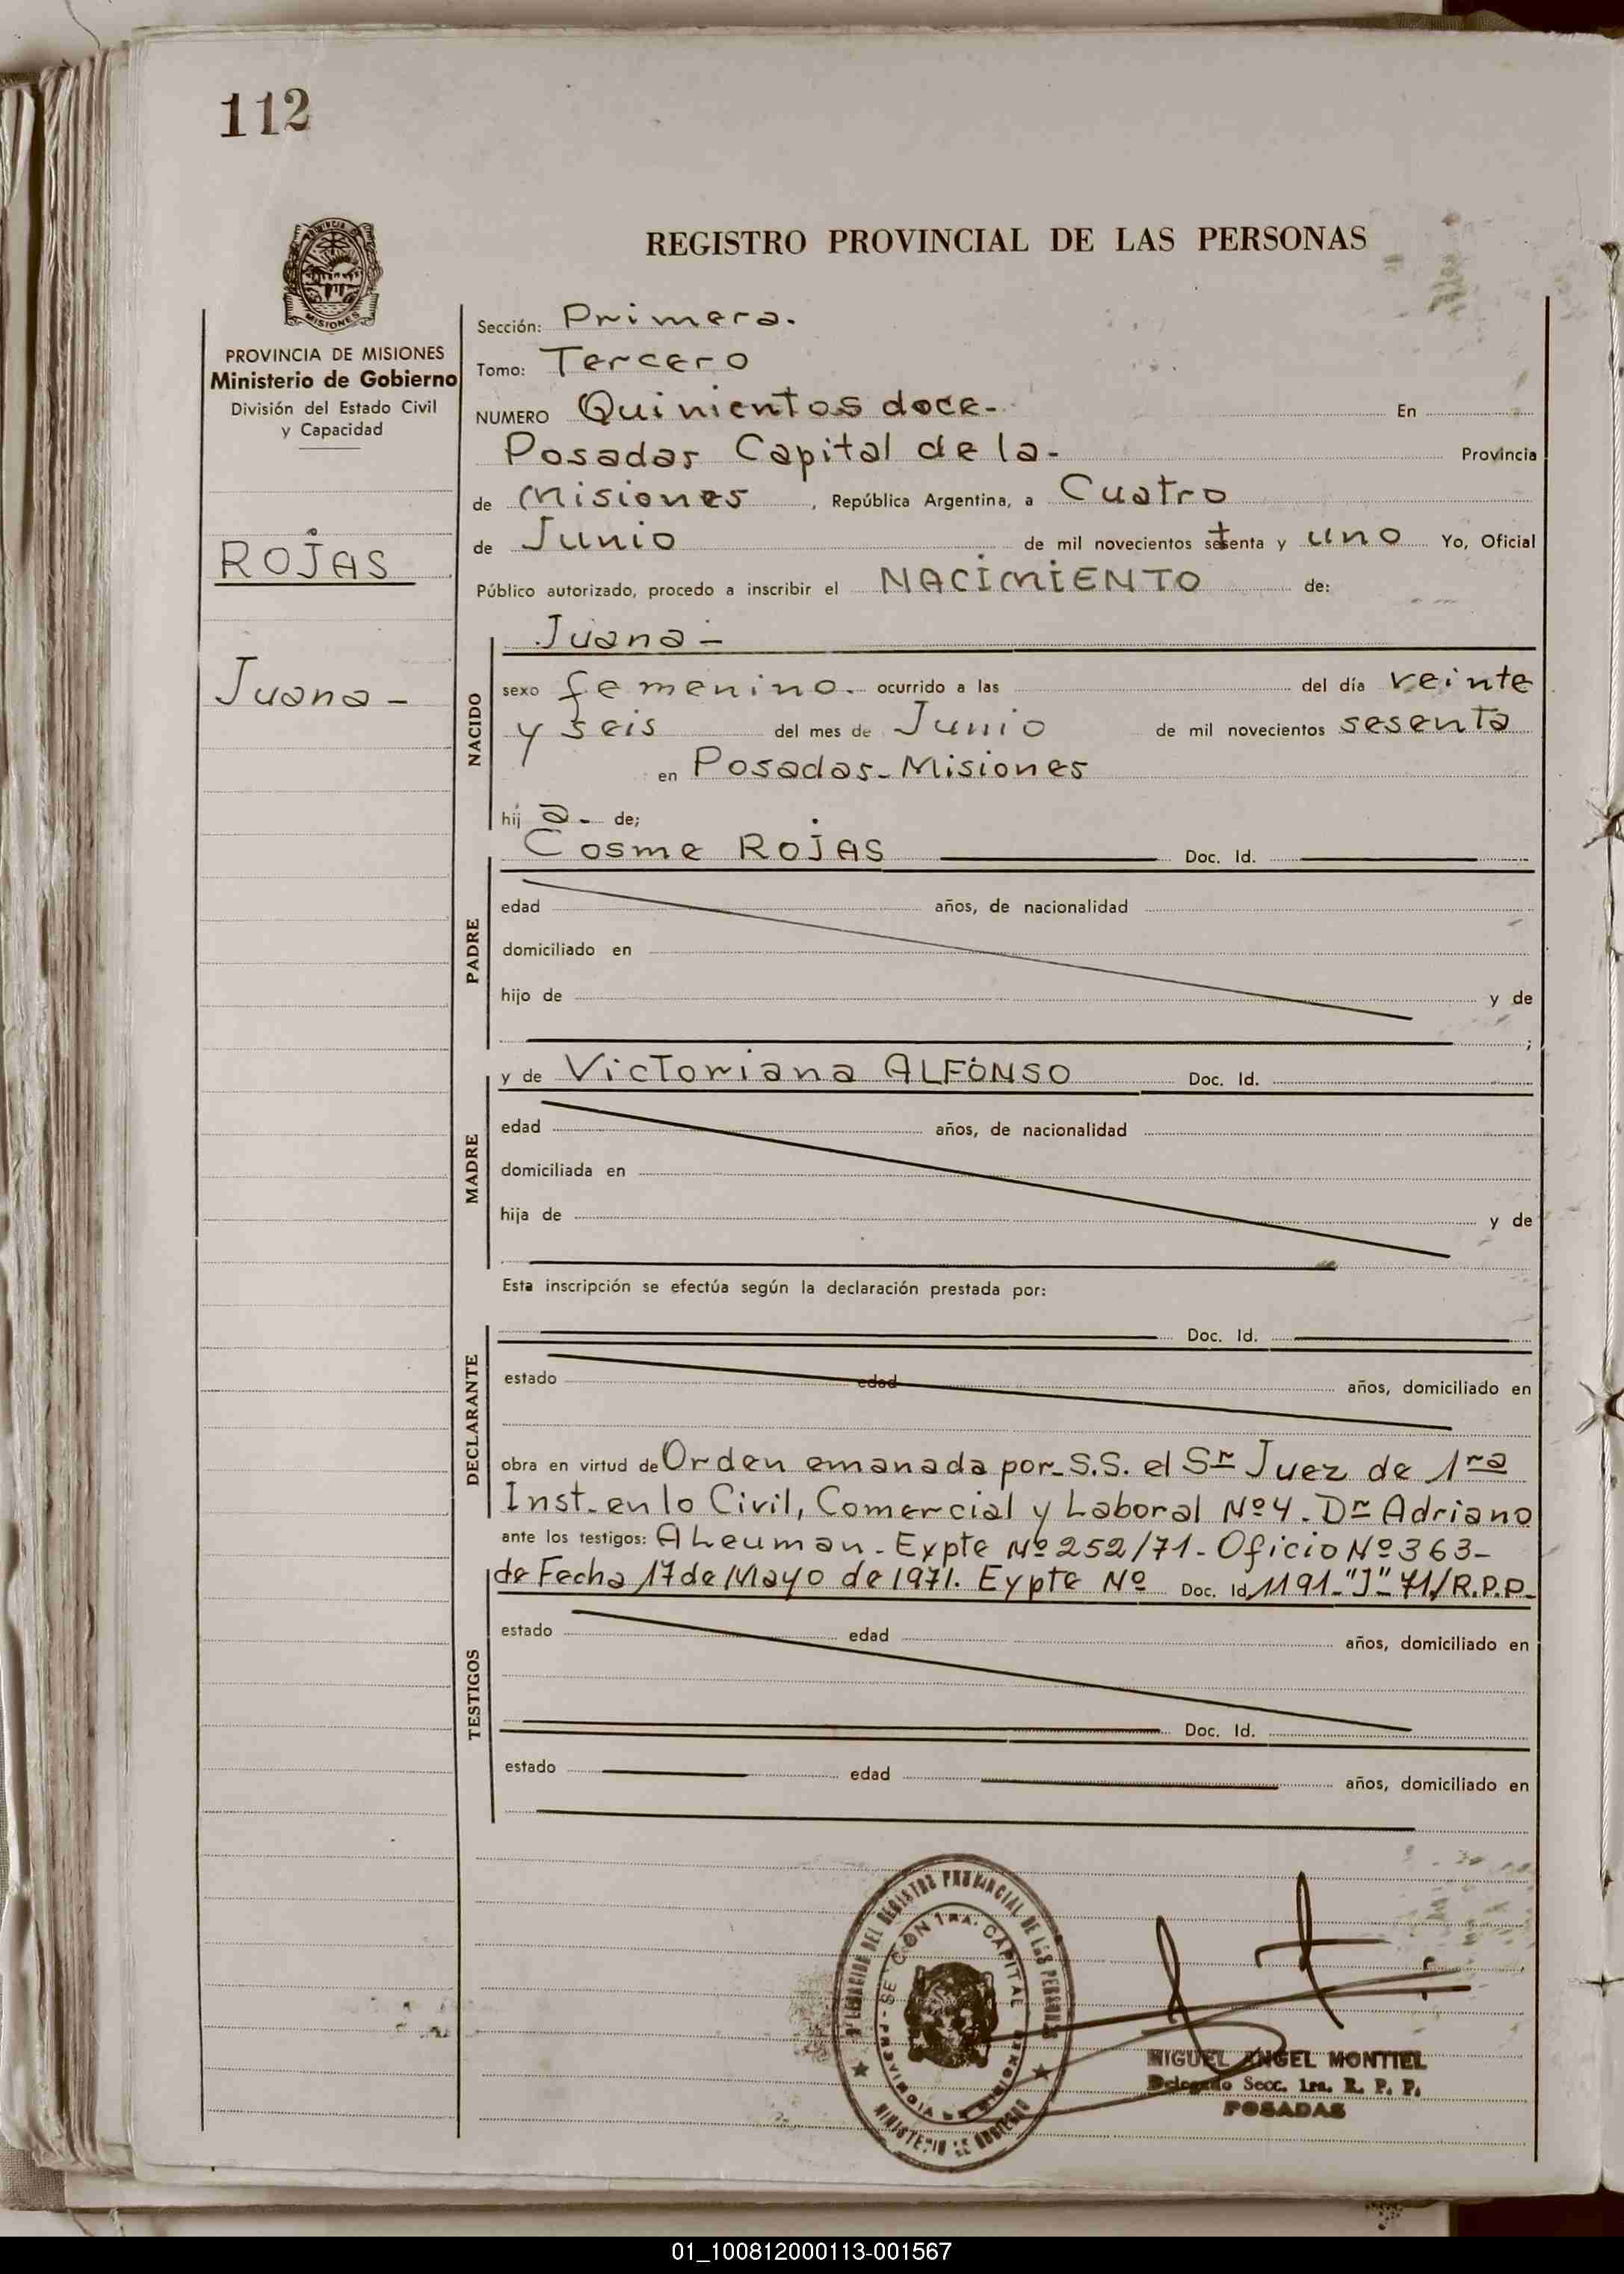 112
REGISTRO PROVINCIAL DE LAS PERSONAS
MISIONES
PROVINCIA DE MISIONES
Ministerio de Gobierno
División del Estado Civil
y Capacidad
ROJAS
Juana -
Sección: Primera.
Tomo: Tercero
NUMERO Quinientos doce- En
Posadas Capital de la- Provincia
de Misiones, República Argentina, a Cuatro
de Junio de mil novecientos setenta y uno Yo, Oficial
Público autorizado, procedo a inscribir el NACIMIENTO de:
Juana -
NACIDO
sexo femenino. ocurrido a las del día veinte
y seis del mes de Junio de mil novecientos sesenta
en Posadas-Misiones
hij a- de;
Cosme ROJAS Doc. Id.
PADRE
edad años, de nacionalidad
domiciliado en
hijo de y de
;
y de Victoriana ALFONSO Doc. Id.
MADRE
edad años, de nacionalidad
domiciliada en
hija de y de
Esta inscripción se efectúa según la declaración prestada por:
Doc. Id.
DECLARANTE
estado edad años, domiciliado en
obra en virtud de Orden emanada por S.S. el Sr Juez de 1ra
Inst. en lo Civil, Comercial y Laboral Nº4. Dr Adriano
ante los testigos: A Leuman - Expte Nº 252/71 - Oficio Nº 363-
de Fecha 17 de Mayo de 1971. Expte Nº Doc. Id. 1191-"J"-71/R.P.P.
TESTIGOS
estado edad años, domiciliado en
Doc. Id.
estado edad años, domiciliado en
DEL REGISTRO PROVINCIAL DE LAS PERSONAS
SECCION 1RA. CAPITAL
PROVINCIA DE MISIONES
MINISTERIO DE GOBIERNO
MIGUEL ANGEL MONTIEL
Delegado Secc. 1ra. R. P. P.
POSADAS
01_100812000113-001567